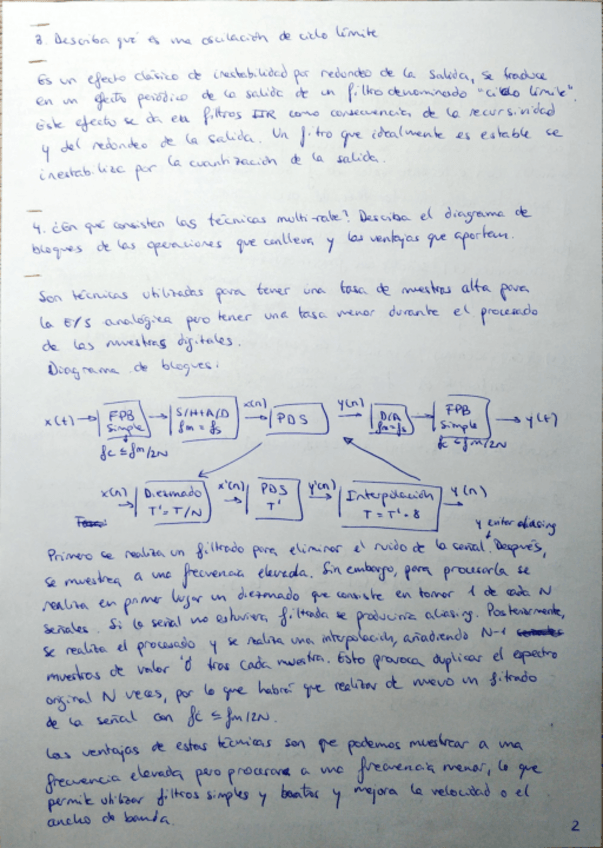 3. Describa qué es una oscilación de ciclo límite
Es un efecto clásico de inestabilidad por redondeo de la salida, se traduce
en un efecto periódico de la salida de un filtro denominado "ciclo límite".
Este efecto se da en filtros IIR como consecuencia de la recursividad
y del redondeo de la salida. Un filtro que idealmente es estable se
inestabiliza por la cuantización de la salida.
4. ¿En qué consisten las técnicas multi-rate? Describa el diagrama de
bloques de las operaciones que conlleva y las ventajas que aportan.
Son técnicas utilizadas para tener una tasa de muestras alta para
la E/S analógica pero tener una tasa menor durante el procesado
de las muestras digitales.
Diagrama de bloques:
x(t) → FPB simple → S/H+A/D fm = fs x(n) PDS y(n) D/A fm=fs → FPB simple → y(t)
fc ≤ fm/2N fc ≤ fm/2N
x(n) → Diezmado T' = T/N x'(n) → PDS T' y'(n) → Interpolación T = T'·8 y(n) →
y evitar aliasing
Primero se realiza un filtrado para eliminar el ruido de la señal. Después,
se muestrea a una frecuencia elevada. Sin embargo, para procesarla se
realiza en primer lugar un diezmado que consiste en tomar 1 de cada N
señales. Si la señal no estuviera filtrada se produciría aliasing. Posteriormente,
se realiza el procesado y se realiza una interpolación, añadiendo N-1
muestras de valor '0' tras cada muestra. Esto provoca duplicar el espectro
original N veces, por lo que habrá que realizar de nuevo un filtrado
de la señal con fc ≤ fm/2N.
Las ventajas de estas técnicas son que podemos muestrear a una
frecuencia elevada pero procesar a una frecuencia menor, lo que
permite utilizar filtros simples y baratos y mejora la velocidad o el
ancho de banda.
2